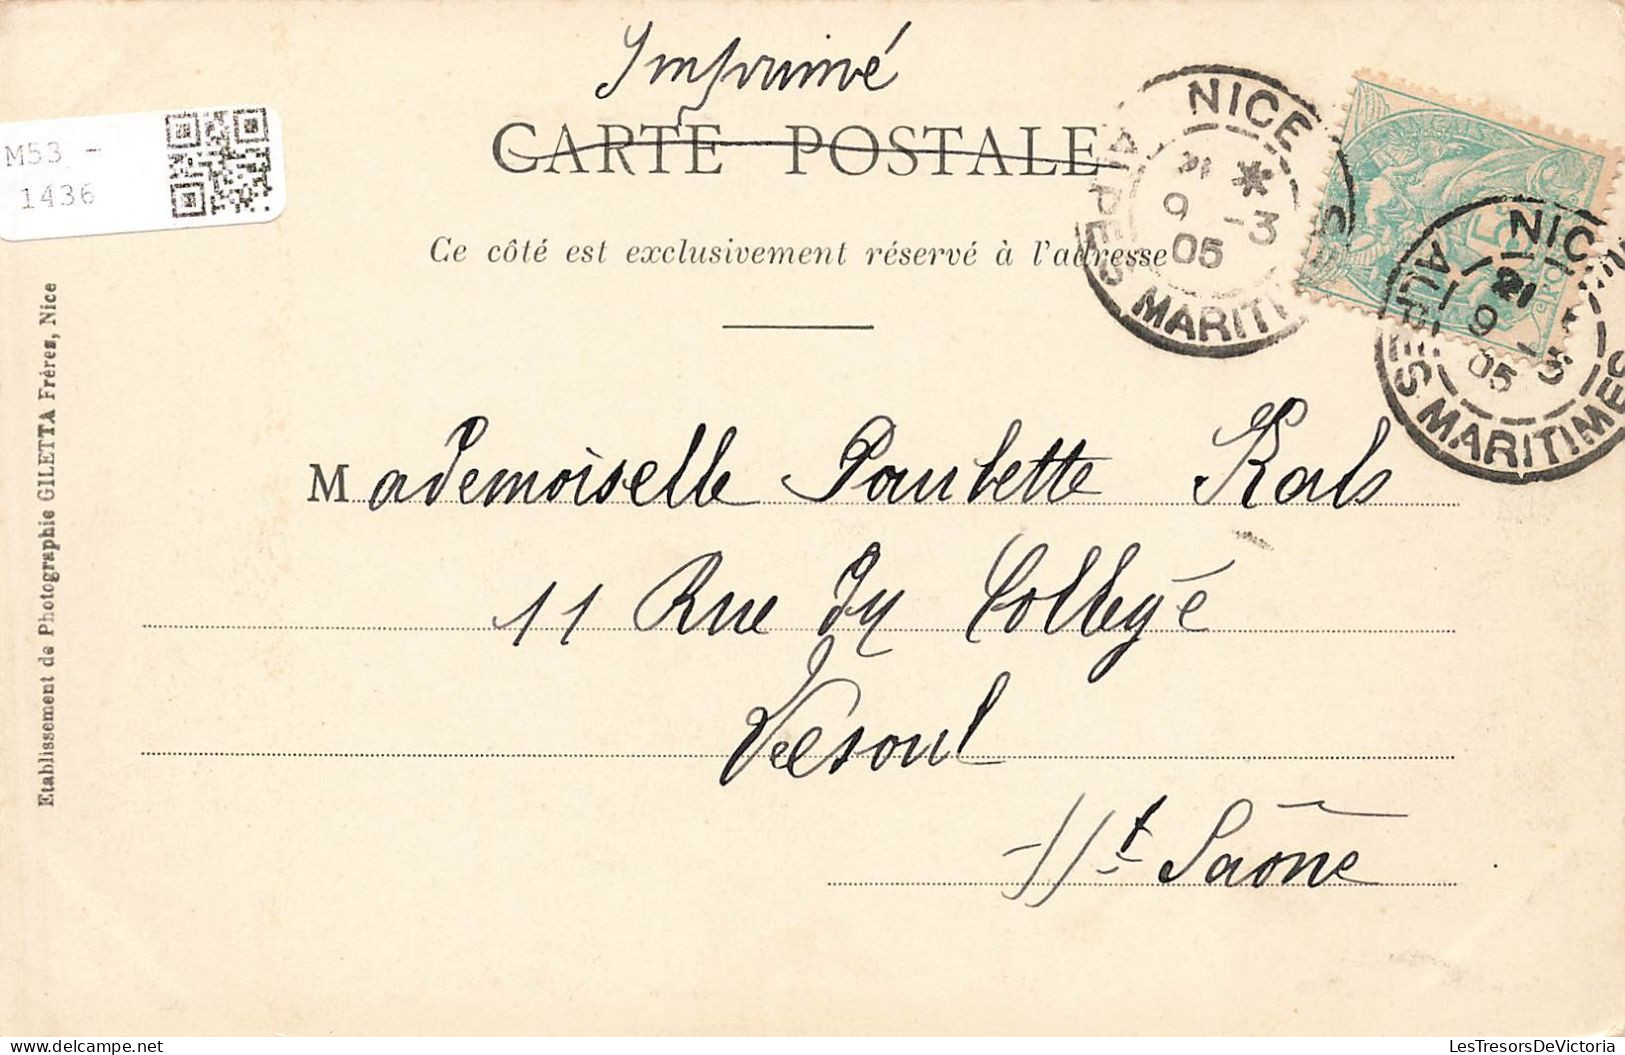 Imprimé
CARTE POSTALE
Ce côté est exclusivement réservé à l'adresse
M53 -
1436
NICE
ALPES MARITIMES
9 -3
05
NICE
ALPES MARITIMES
9 -3
05
Mademoiselle Paulette Kals
11 Rue du Collège
Vesoul
Hte Saône
Etablissement de Photographie GILETTA Frères, Nice
LesTresorsDeVictoria